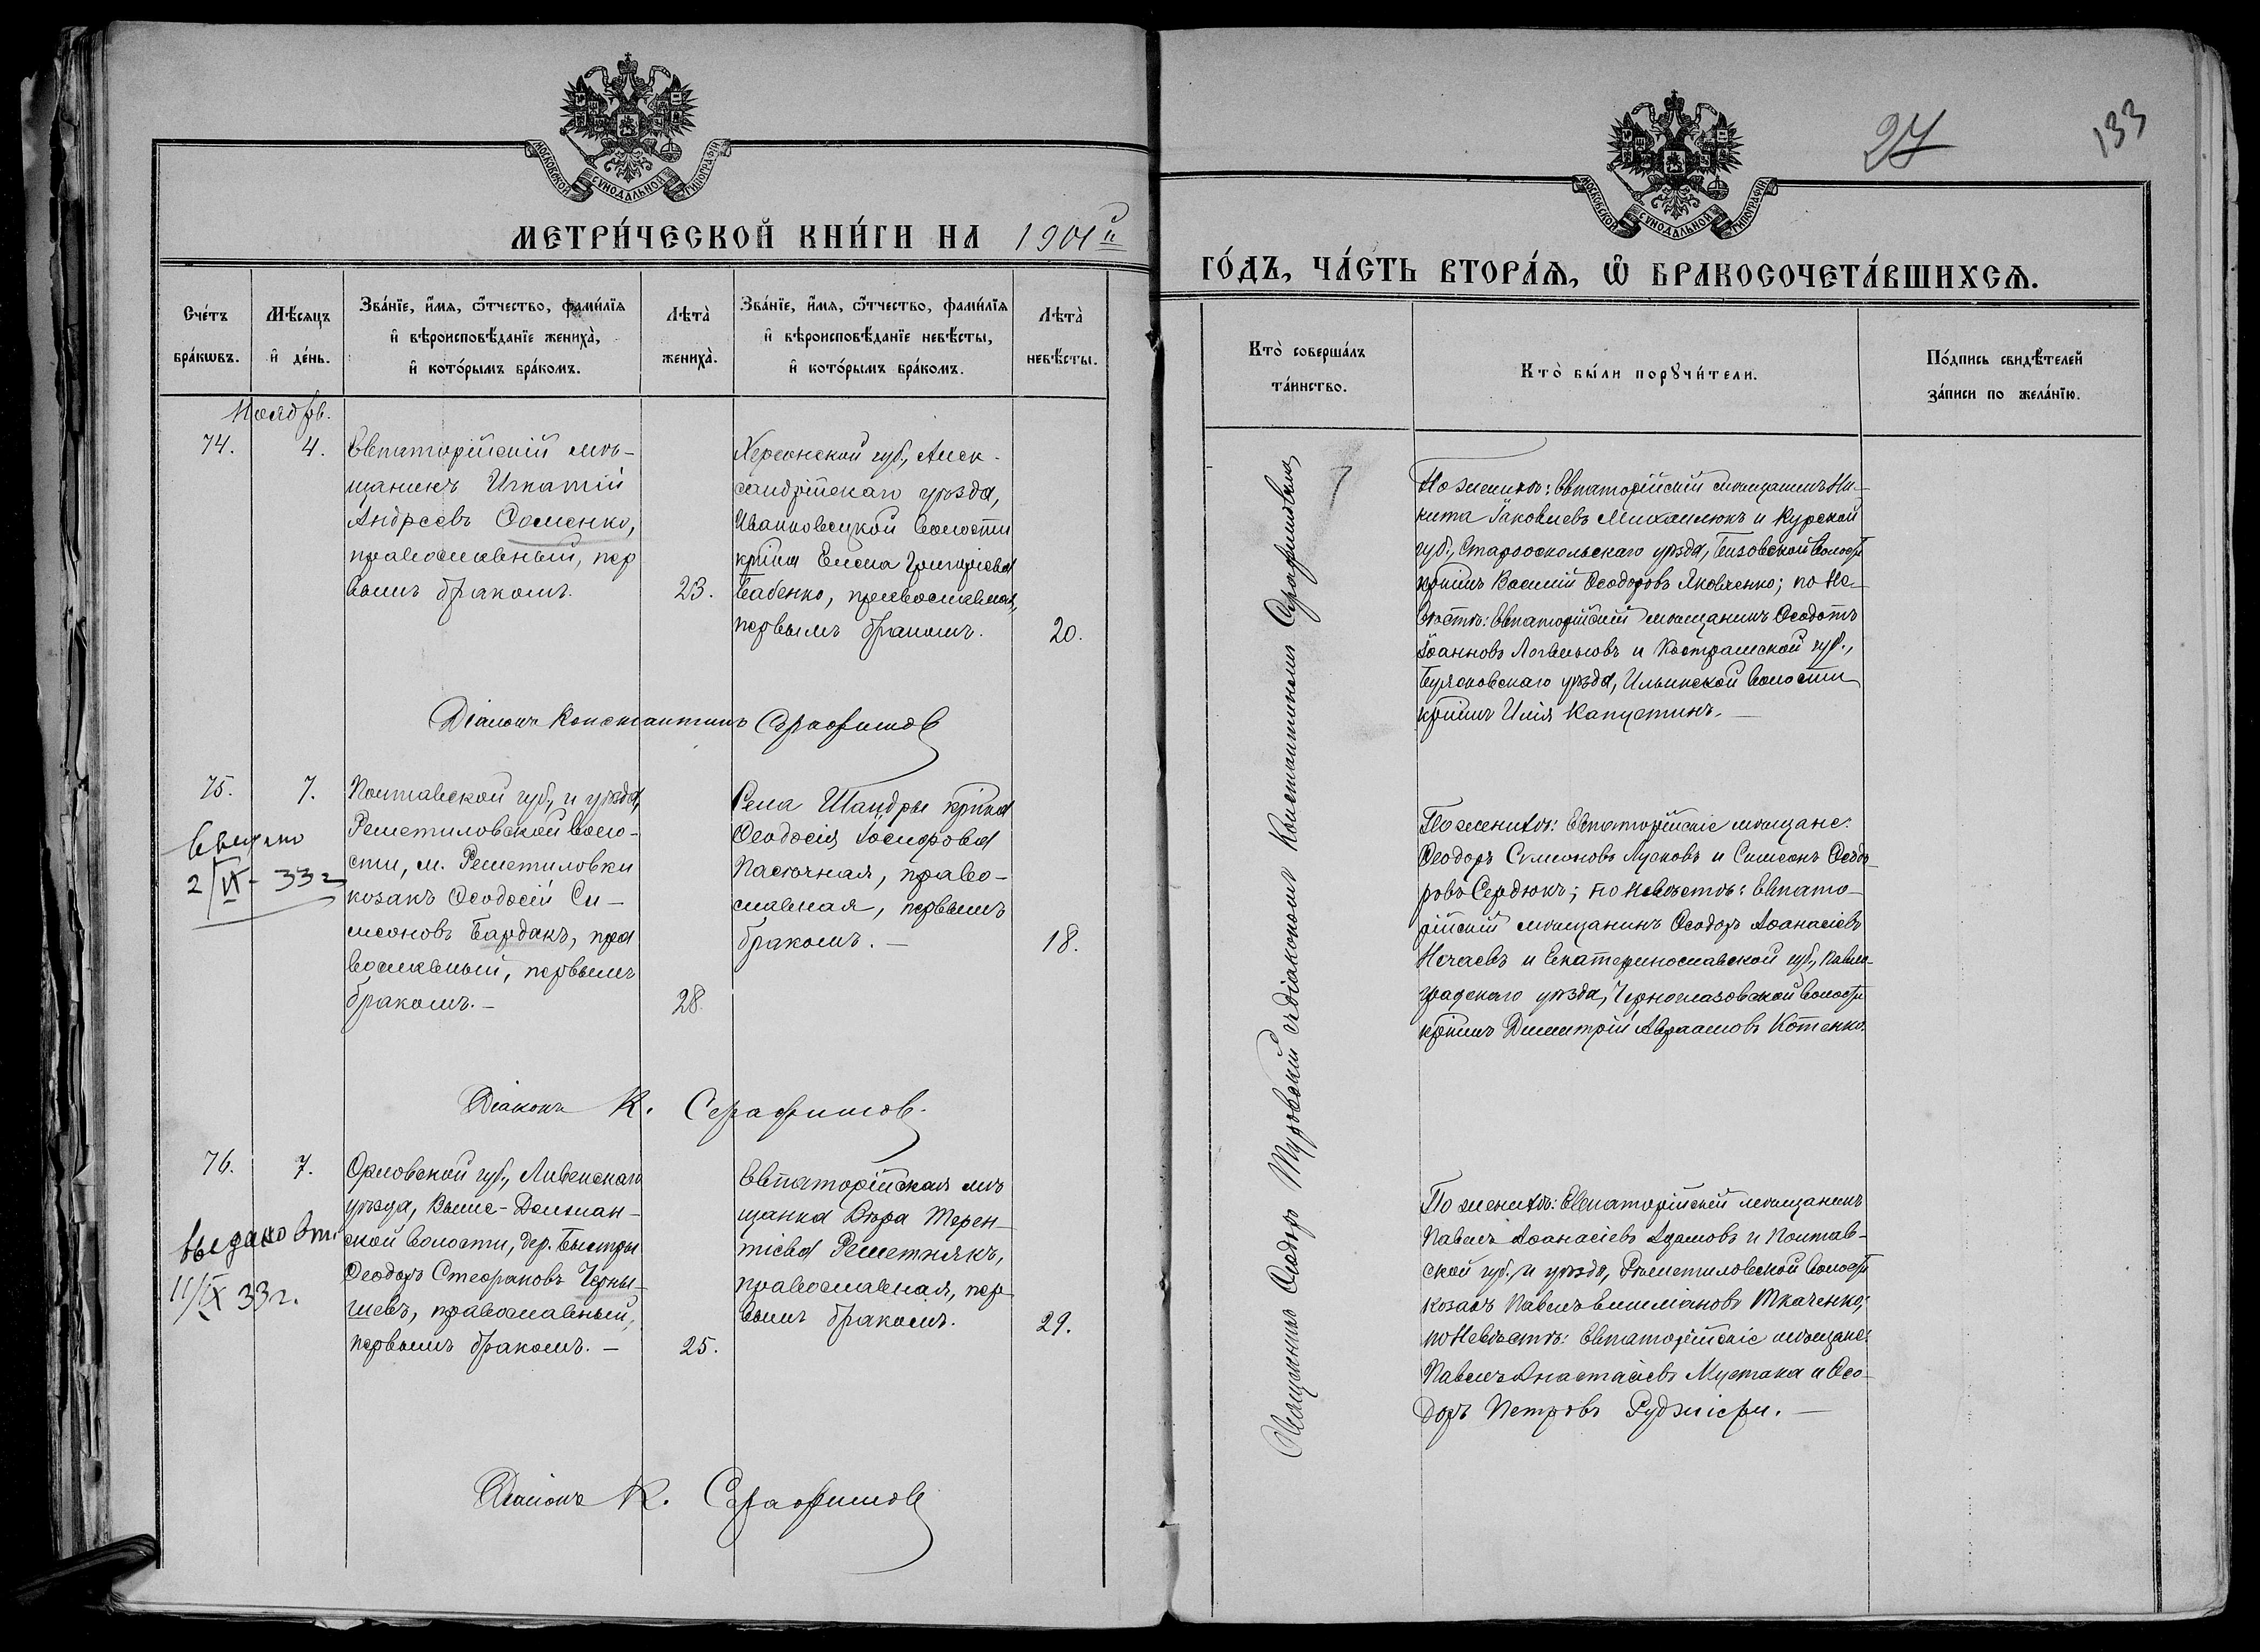 МОСКОВСКОЙ СѴНОДАЛЬНОЙ ТИПОГРАФІИ
МЕТРИ́ЧЕСКОЙ КНИ́ГИ НА 1901й
Сче́тъ бра́кѡвъ.
Мѣ́сяцъ и҆ де́нь.
Зва́нїе, и҆́мя, ѻ҆́тчество, фами́лїя
и҆ вѣроисповѣ́данїе жениха̀,
и҆ кото́рымъ бра́комъ.
Лѣта̀ жениха̀.
Зва́нїе, и҆́мя, ѻ҆́тчество, фами́лїя
и҆ вѣроисповѣ́данїе невѣ́сты,
и҆ кото́рымъ бра́комъ.
Лѣта̀ невѣ́сты.
Ноябрь.
74.
4.
Евпаторійскій мѣ-
щанинъ Игнатій
Андреевъ Ѳоменко,
православный, пер
вымъ бракомъ.
23.
Херсонской губ., Алек-
сандрійскаго уѣзда,
Ивановецкой волости
кр҃нка Елена Григоріева
Бабенко, православная,
первымъ бракомъ.
20.
Діаконъ Константинъ Серафимовъ
75.
7.
выдано
2/IX-33г
Полтавской губ., и уѣзда,
Решетиловской воло-
сти, м. Решетиловки
козакъ Ѳеодосій Си-
меоновъ Бардакъ, пра
вославный, первымъ
бракомъ. —
28.
Села Шандры кр҃нка
Ѳеодосія Іосифова
Пасючная, право-
славная, первымъ
бракомъ. —
18.
Діаконъ К. Серафимовъ.
76.
7.
выдано
11/IX 33г.
Орловской губ., Ливенскаго
уѣзда, Выше-Должан-
ской волости, дер. Быстры
Ѳеодоръ Стефановъ Черны-
шевъ, православный,
первымъ бракомъ. —
25.
Евпаторійская мѣ
щанка Вѣра Терен-
тіева Решетнякъ,
православная, пер
вымъ бракомъ.
29.
Діаконъ К. Серафимовъ
27
133
МОСКОВСКОЙ СѴНОДАЛЬНОЙ ТИПОГРАФІИ
ГО́ДЪ, ЧА́СТЬ ВТОРА́Я, Ѡ҆ БРАКОСОЧЕТА́ВШИХСЯ.
Кто̀ соверша́лъ
та́инство.
Кто̀ бы́ли порꙋчи́тели.
По́дпись свидѣ́телей
за́писи по жела́нїю.
Священникъ Ѳеодоръ Туровскій съ діакономъ Константиномъ Серафимовымъ
По женихѣ: Евпаторійскій мѣщанинъ Ни-
кита Іаковлевъ Михаилюкъ и Курской
губ., Старооскольскаго уѣзда, волости
кр҃нинъ Василій Ѳеодоровъ Яковченко; по не-
вѣстѣ: Евпаторійскій мѣщанинъ Ѳеодотъ
Іоанновъ Логвиновъ и Костромской губ.,
уѣзда, Ильинской волости
кр҃нинъ Илія Капустинъ. —
По женихѣ: Евпаторійскіе мѣщане:
Ѳеодоръ Симеоновъ и Симеонъ Ѳеодо-
ровъ Сердюкъ; по невѣстѣ: Евпато-
рійскій мѣщанинъ Ѳеодоръ Аѳанасіевъ
Нечаевъ и Екатеринославской губ., Павло-
градскаго уѣзда, Черноглазовской волости
кр҃нинъ Димитрій Авраамовъ Котенко.
По женихѣ: Евпаторійскій мѣщанинъ
Павелъ Аѳанасіевъ Адамовъ и Полтав-
ской губ. и уѣзда, Решетиловской волости
козакъ Павелъ Емиліановъ Ткаченко;
по невѣстѣ: Евпаторійскіе мѣщане:
Павелъ Анастасіевъ Мустака и Ѳео-
доръ Петровъ Руджіери. —